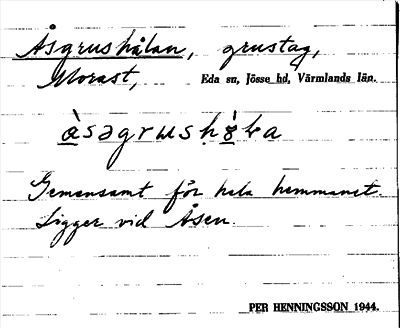 Åsgrushålan, grustag,
Morast, Eda sn, Jösse hd, Värmlands län.
àsəgrusḥö̀ła
Gemensamt för hela hemmanet.
Ligger vid Åsen.
PER HENNINGSSON 1944.